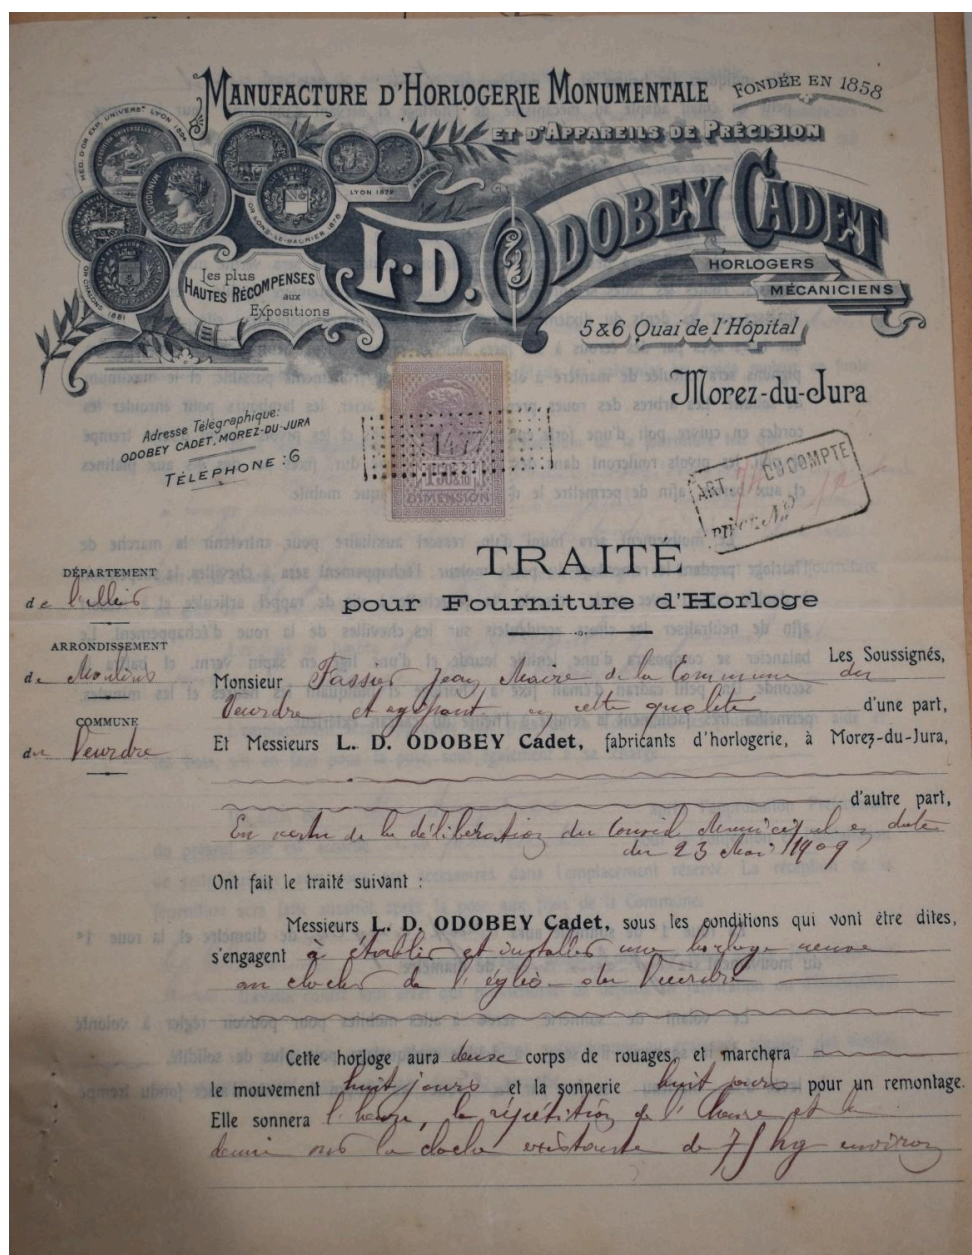 MANUFACTURE D'HORLOGERIE MONUMENTALE
FONDÉE EN 1858
ET D'APPAREILS DE PRÉCISION
MED. D'OR EXP. UNIVERS. LYON
LYON 1872
OR LONS-LE-SAUNIER 1878
OR CHALONS 1881
Les plus
HAUTES RÉCOMPENSES
aux
Expositions
L.D. ODOBEY CADET
HORLOGERS
MÉCANICIENS
5&6, Quai de l'Hôpital
Morez-du-Jura
Adresse Télégraphique:
ODOBEY CADET, MOREZ-DU-JURA
TÉLÉPHONE : 6
1477
DIMENSION
ART. DU COMPTE
PIÈCE No
TRAITÉ
pour Fourniture d'Horloge
DÉPARTEMENT
de l'Allier
ARRONDISSEMENT
de Moulins
COMMUNE
du Veurdre
Les Soussignés,
Monsieur Tassier Jean Maire de la Commune du
Veurdre et agissant en cette qualité d'une part,
Et Messieurs L. D. ODOBEY Cadet, fabricants d'horlogerie, à Morez-du-Jura,
d'autre part,
En vertu de la délibération du Conseil Municipal en date
du 23 Mai 1909
Ont fait le traité suivant :
Messieurs L. D. ODOBEY Cadet, sous les conditions qui vont être dites,
s'engagent à établir et installer une horloge neuve
au clocher de l'église du Veurdre
Cette horloge aura deux corps de rouages, et marchera
le mouvement huit jours et la sonnerie huit jours pour un remontage.
Elle sonnera l'heure, la répétition de l'heure et la
demie sur la cloche existante de 75 kg environ